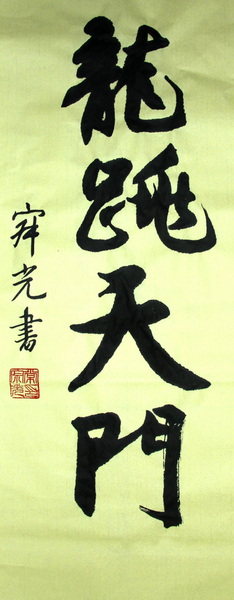 龍跳天門
宗光書